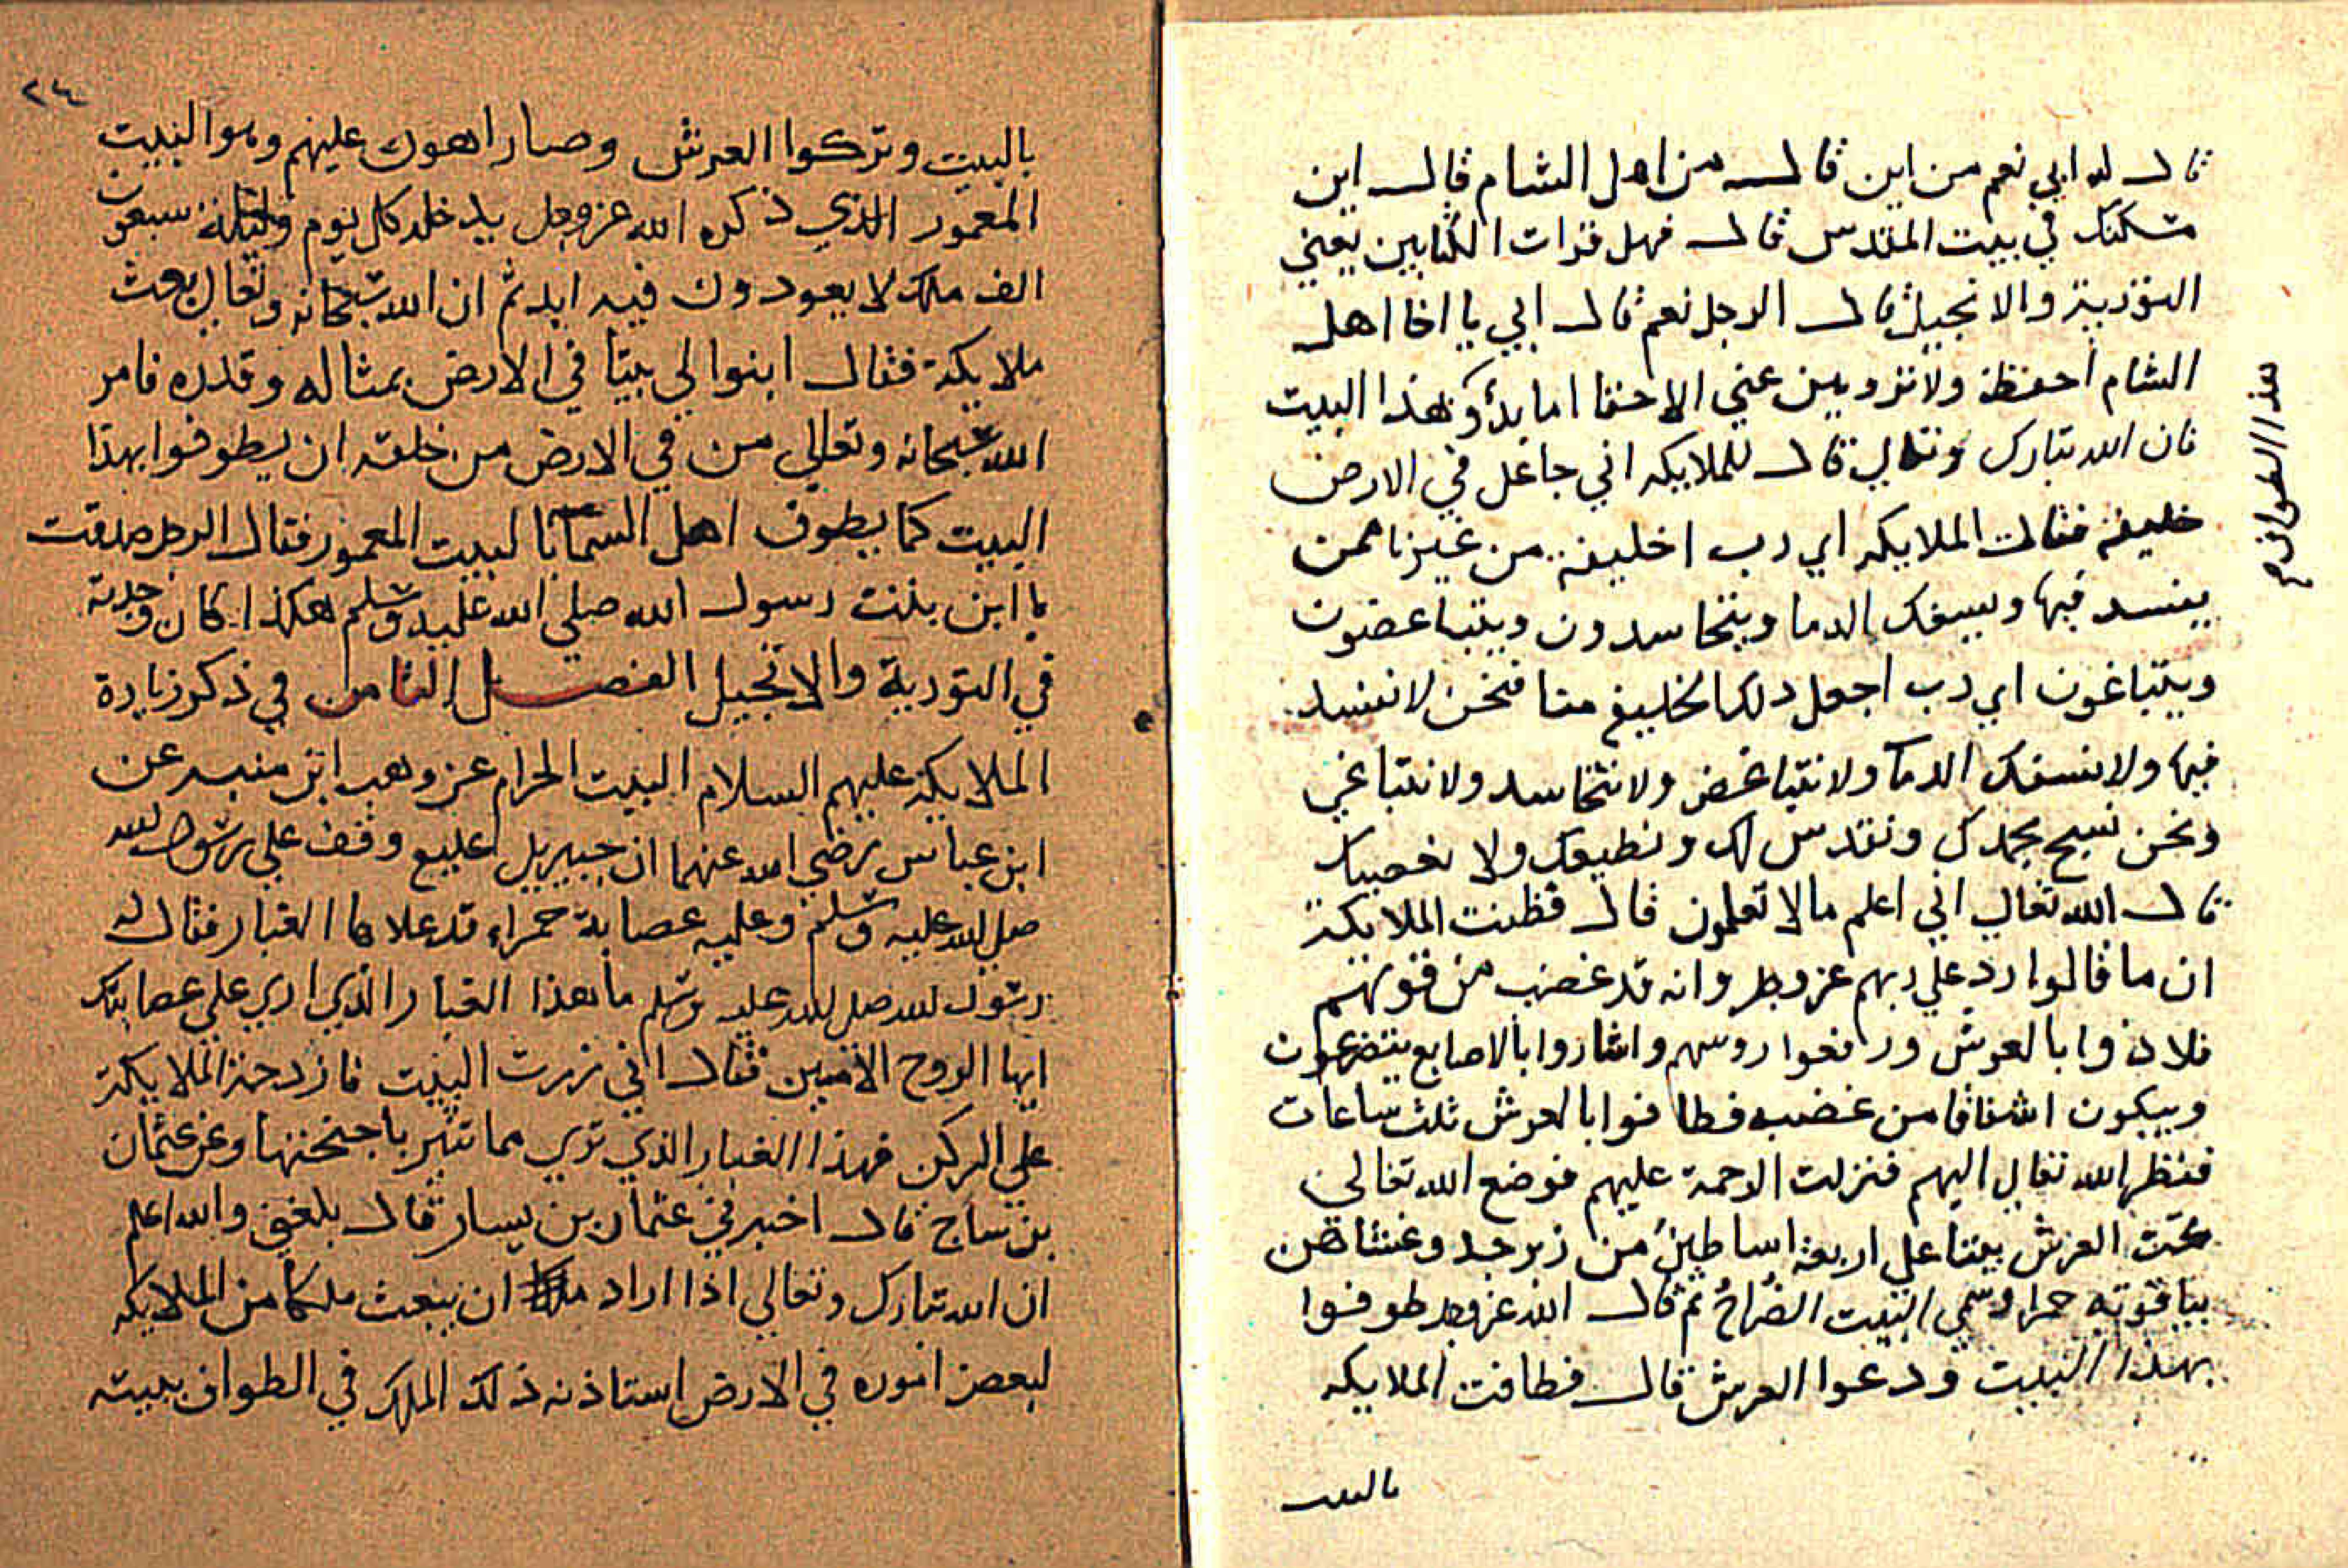 قال له ابي نعم من اين قال من اهل الشام قال اين
مسكنك في بيت المقدس قال فهل قرات الكتابين يعني
التورية والانجيل قال الرجل نعم قال ابي يا اخا اهل
الشام احفظ ولا تروين عني الا حقا اما بدؤ هذا البيت
فان الله تبارك وتعالي قال للملايكه اني جاعل في الارض
خليفه فقالت الملايكه اي رب اخليفة من غيرنا ممن
يفسد فيها ويسفك الدما ويتحاسدون ويتباغضون
ويتباغون اي رب اجعل ذلك الخليفه منا فنحن لا نفسد
فيها ولا نسفك الدما ولا نتباغض ولا نتحاسد ولا نتباغي
ونحن نسبح بحمدك ونقدس لك ونطيعك ولا نعصيك
قال الله تعالي اني اعلم ما لا تعلمون قال فظنت الملايكة
ان ما قالوا رد علي ربهم عز وجل وانه قد غضب من قولهم
فلاذوا بالعرش ورفعوا روسهم واشاروا بالاصابع يتضرعون
ويبكون اشفاقا من غضبه فطافوا بالعرش ثلث ساعات
فنظر الله تعالي اليهم فنزلت الرحمة عليهم فوضع الله تعالي
تحت العرش بيتا علي اربعة اساطين من زبرجد وغشاهن
بياقوته حمرا وسمي البيت الضُراحُ ثم قال الله عز وجل طوفوا
بهذا البيت ودعوا العرش قال فطافت الملايكه
بالبيت
هذا الطواف
٢٤
بالبيت وتركوا العرش وصار اهون عليهم وهو البيت
المعمور الذي ذكره الله عز وجل يدخله كل يوم وليلة سبعون
الف ملك لا يعودون فيه ابد ثم ان الله سبحانه وتعالي بعث
ملايكة فقال ابنوا لي بيتا في الارض بمثاله وقدره فامر
الله سبحانه وتعالي من في الارض من خلقه ان يطوفوا بهذا
البيت كما يطوف اهل السما بالبيت المعمور فقال الرجل صدقت
يا ابن بنت رسول الله صلي الله عليه وسلم هكذا كان وجدته
في التورية والانجيل الفصل الثامن في ذكر زيارة
الملايكة عليهم السلام البيت الحرام عن وهب ابن منبه عن
ابن عباس رضي الله عنهما ان جبيريل وقف علي رسول الله
صلي الله عليه وسلم وعليه عصابة حمراء قد علاها الغبار فقال له
رسول الله صلي الله عليه وسلم ما هذا الغبار الذي اري علي عصابتك
ايها الروح الامين فقال اني زرت البيت فازدحمة الملايكة
علي الركن فهذا الغبار الذي تري مما تثير باجنحتها وعن عثمان
بن ساج قال اخبرني عثمان بن يسار قال بلغني والله اعلم
ان الله تبارك وتعالي اذا اراد ان يبعث ملكا من الملايكه
لبعض اموره في الارض استاذنه ذلك الملك في الطواف ببيته